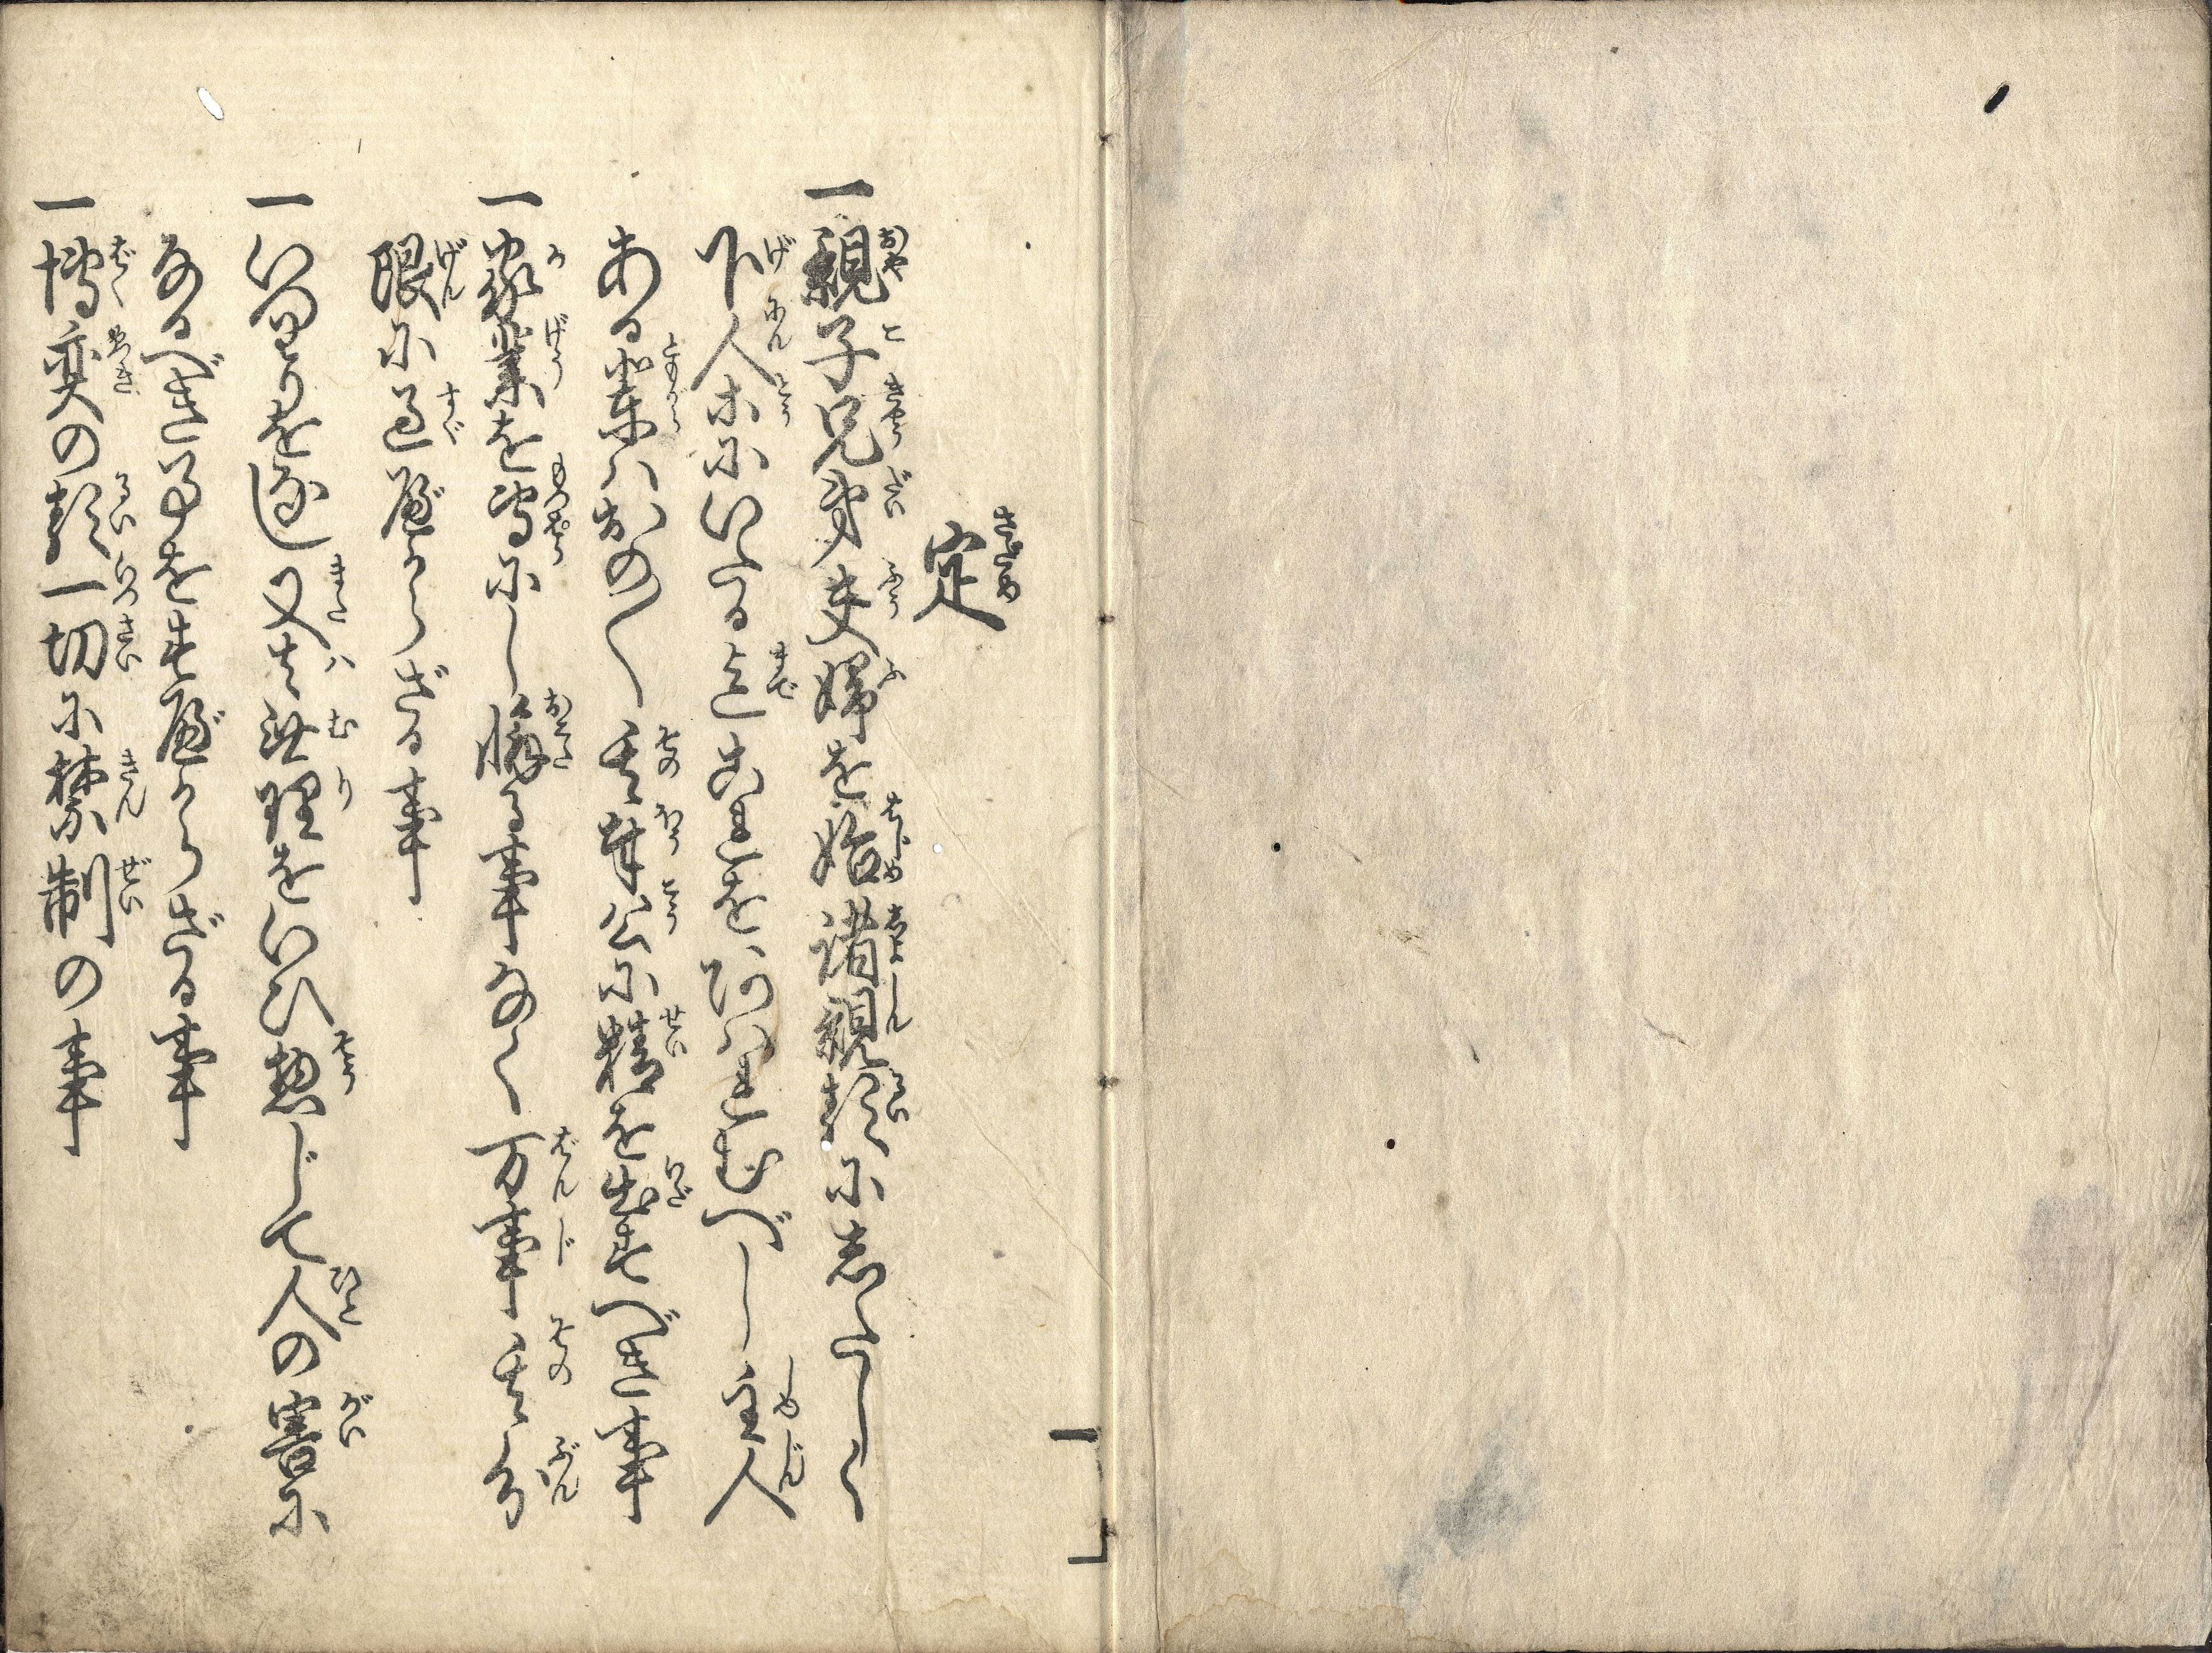 定
一親子兄弟夫婦を始諸親類にしたしく
下人等にいたる迄これをあはれむべし主人
ある輩ハおの〱其奉公に精を出すべき事
一家業を専にし懈る事なく万事其分
限に過べからざる事
一いつはりをなし又ハ無理をいひ惣じて人の害に
なるべき事をすべからざる事
一博奕の類一切に禁制の事
一